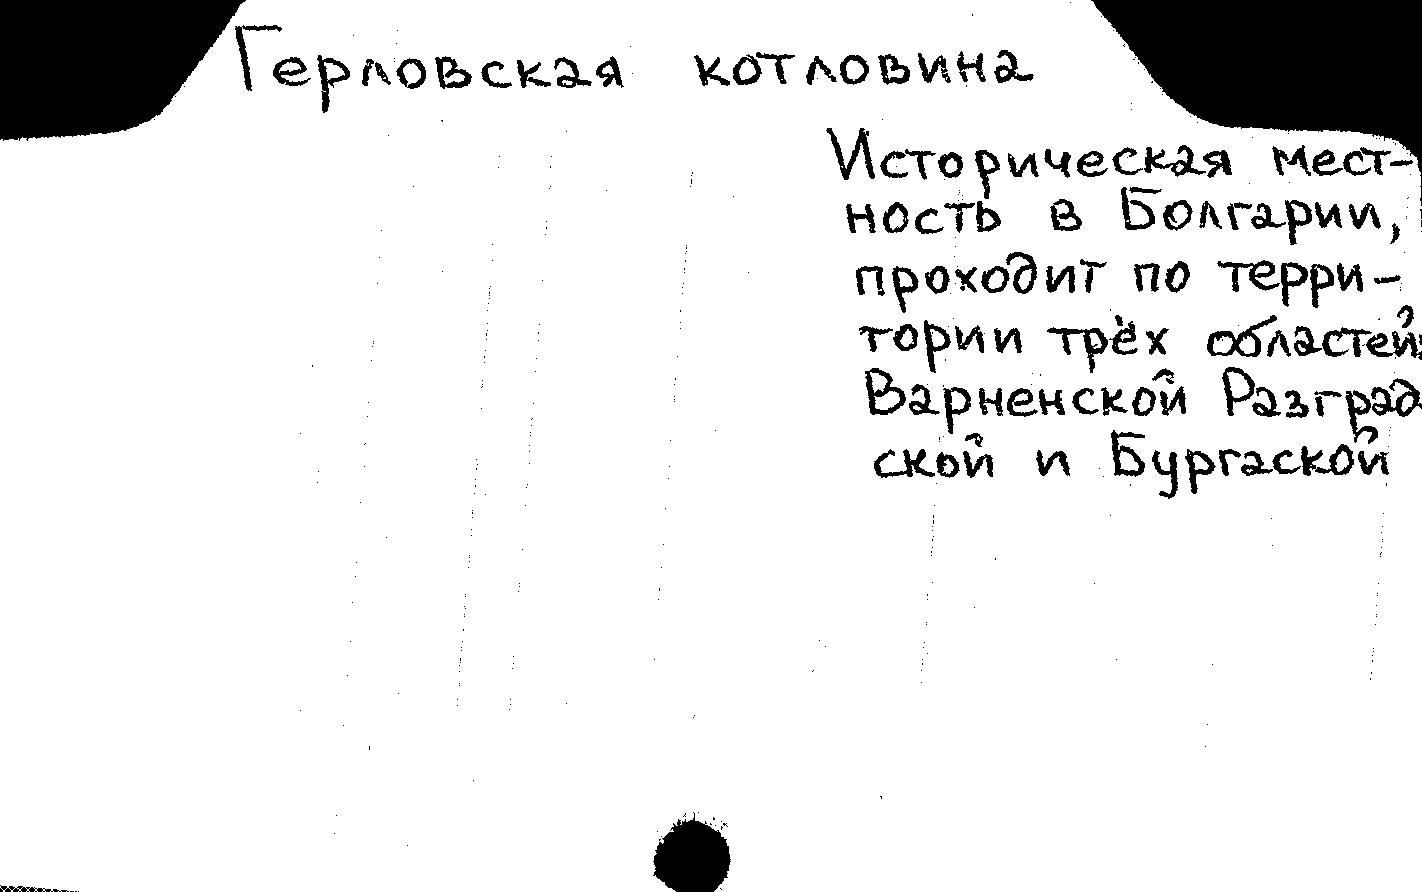 Герловская котловина
Историческая мест-
ность в Болгарии,
проходит по терри-
тории трёх областей:
Варненской Разград
ской и Бургаской